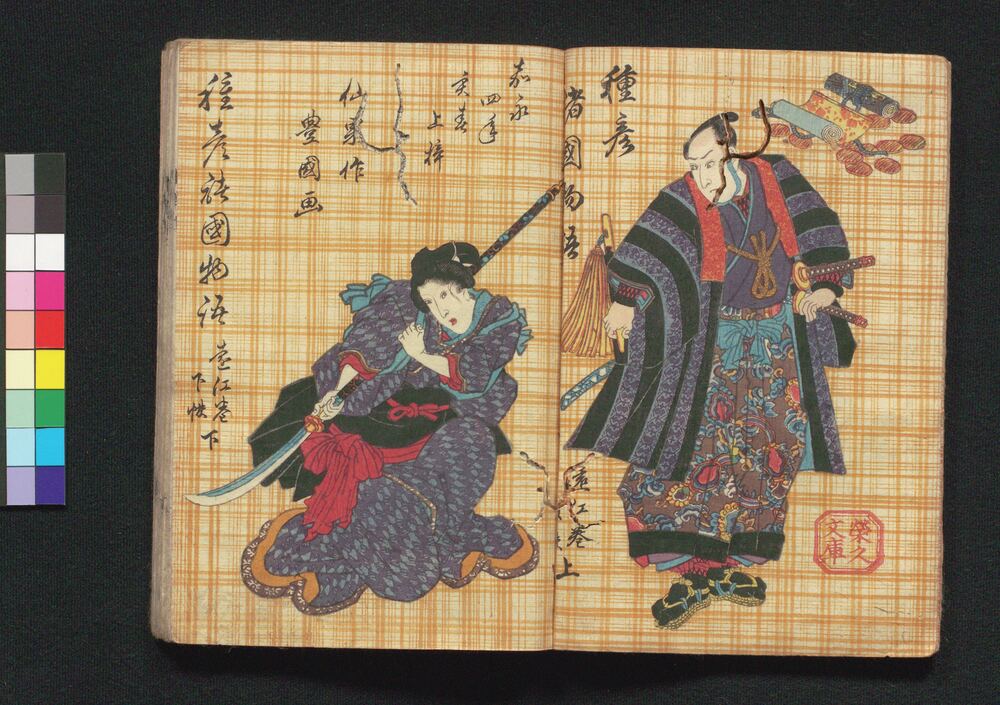 種彦
諸國物語
遠江巻之上
榮久
文庫
嘉永
四年
亥春
上梓
仙果作
豊國画
種彦諸國物語
遠江巻
下帙
下